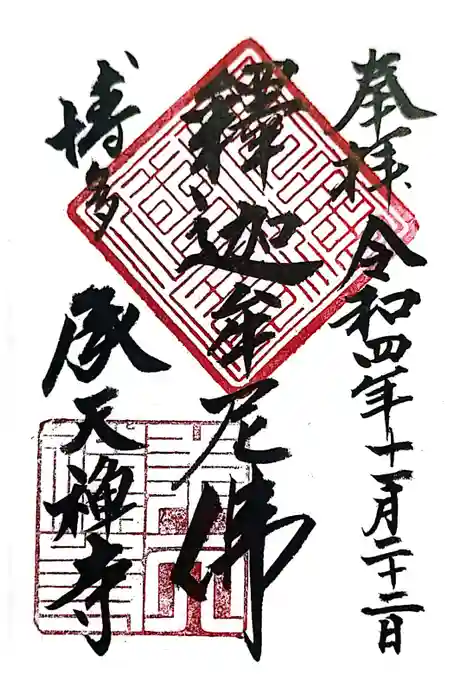 奉拝 令和四年十一月二十二日
釋迦牟尼佛
博多 承天禅寺